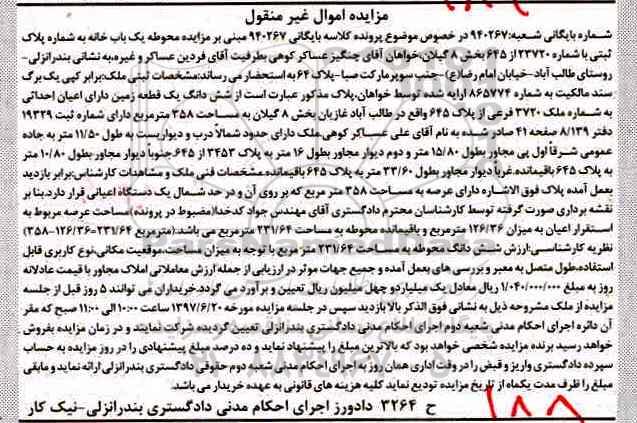 مزایده اموال غیر منقول
شماره بایگانی شعبه:۹۴۰۲۶۷ در خصوص موضوع پرونده کلاسه بایگانی ۹۴۰۲۶۷ مبنی بر مزایده محوطه یک باب خانه به شماره پلاک
ثبتی با شماره ۲۳۷۲۰ از ۶۴۵ بخش ۸ گیلان،خواهان آقای چنگیز عساکر کوهی بطرفیت آقای فردین عساکر و غیره،به نشانی بندرانزلی-
روستای طالب آباد-خیابان امام رضا(ع)- جنب سوپرمارکت صبا-پلاک ۶۴ به استحضار می رساند:مشخصات ثبتی ملک:برابر کپی یک برگ
سند مالکیت به شماره ۸۶۵۷۷۴ ارایه شده توسط خواهان،پلاک مذکور عبارت است از شش دانگ یک قطعه زمین دارای اعیان احداثی
به شماره ملک ۳۷۲۰ فرعی از پلاک ۶۴۵ واقع در طالب آباد غازیان بخش ۸ گیلان به مساحت ۳۵۸ مترمربع دارای شماره ثبت ۱۹۳۲۹
دفتر ۸/۱۳۹ صفحه ۴۱ صادر شده به نام آقای علی عساکر کوهی.ملک دارای حدود شمالاً درب و دیواریست به طول ۱۱/۵۰ متر به جاده
عمومی شرقاً اول پی مجاور بطول ۱۵/۸۰ متر و دوم دیوار مجاور بطول ۱۶ متر به پلاک ۳۴۵۳ از ۶۴۵،جنوباً دیوار مجاور بطول ۱۰/۸۰ متر
به پلاک ۶۴۵ باقیمانده،غرباً دیوار مجاور بطول ۳۳/۶۰ متر به پلاک ۶۴۵ باقیمانده.مشخصات فنی ملک و مشاهدات کارشناس:برابر بازدید
بعمل آمده پلاک فوق الاشاره دارای عرصه به مساحت ۳۵۸ متر مربع که بر روی آن و در حد شمال یک دستگاه اعیانی قرار دارد.بنا بر
نقشه برداری صورت گرفته توسط کارشناسان محترم دادگستری آقای مهندس جواد کدخدا(مضبوط در پرونده)مساحت عرصه مربوط به
استقرار اعیان به میزان ۱۲۶/۳۶ مترمربع و باقیمانده محوطه به مساحت ۲۳۱/۶۴ مترمربع می باشد.(مترمربع ۲۳۱/۶۴=۱۲۶/۳۶-۳۵۸)
نظریه کارشناسی:ارزش شش دانگ محوطه به مساحت ۲۳۱/۶۴ متر مربع با توجه به میزان مساحت،موقعیت مکانی،نوع کاربری قابل
استفاده،طول متصل به معبر و بررسی های بعمل آمده و جمیع جهات موثر در ارزیابی از جمله ارزش معاملاتی املاک مجاور با قیمت عادلانه
روز به مبلغ ۱/۰۴۰/۰۰۰/۰۰۰ ریال معادل یک میلیاردو چهل میلیون ریال تعیین و برآورد می گردد.خریداران می توانند ۵ روز قبل از جلسه
مزایده از ملک مشروحه ذیل به نشانی فوق الذکر بالا بازدید سپس در جلسه مزایده مورخه ۱۳۹۷/۶/۲۰ ساعت ۱۰:۰۰ الی ۱۱:۰۰ صبح که مقر
آن دائره اجرای احکام مدنی شعبه دوم اجرای احکام مدنی دادگستری بندرانزلی تعیین گردیده شرکت نمایند و در زمان مزایده بفروش
خواهد رسید برنده مزایده شخصی خواهد بود که بالاترین مبلغ را پیشنهاد نماید و ده درصد مبلغ پیشنهادی را در روز مزایده به حساب
سپرده دادگستری واریز و قبض را در وقت اداری همان روز به اجرای احکام مدنی شعبه دوم حقوقی دادگستری بندرانزلی ارائه نماید و مابقی
مبلغ را ظرف مدت یکماه از تاریخ مزایده تودیع نماید کلیه هزینه های قانونی به عهده خریدار می باشد.
ح ۳۲۶۴ دادورز اجرای احکام مدنی دادگستری بندرانزلی-نیک کار
۱۸۸